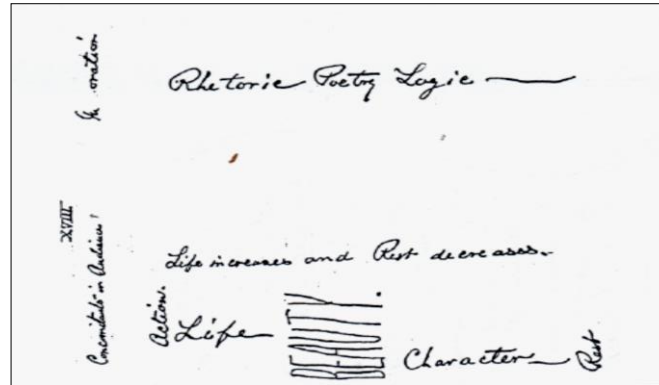 In oration
Rhetoric Poetry Logic
XVIII
Concomitants in Audience!
Life increases and Rest decreases.
Action.
Life
Character
Rest